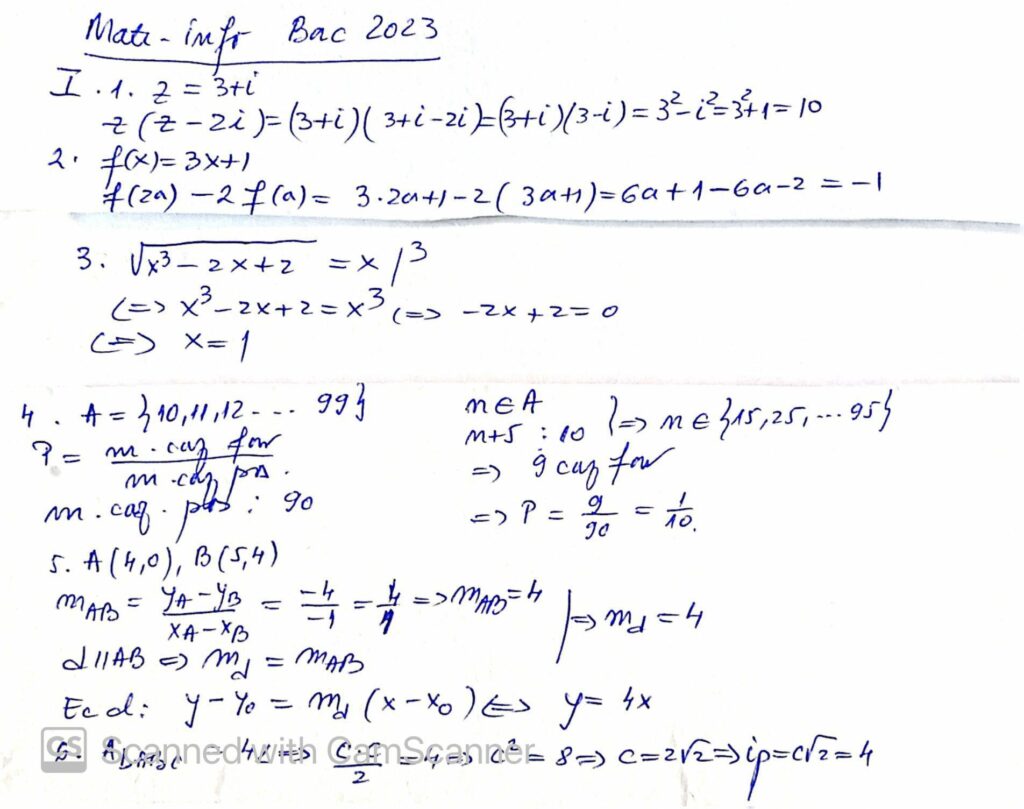 Mate-info Bac 2023
I. 1. z = 3+i
z(z-2i)=(3+i)(3+i-2i)=(3+i)(3-i)=3²-i²=3²+1=10
2. f(x)=3x+1
f(2a)-2f(a)= 3·2a+1-2(3a+1)=6a+1-6a-2=-1
3. √x³-2x+2 = x /³
<=> x³-2x+2=x³ <=> -2x+2=0
<=> x=1
4. A={10,11,12... 99}
P= m.caz fav / m.caz pos.
m.caz.pos: 90
n∈A
n+5 ⋮ 10 }=> n∈{15,25,...95}
=> 9 caz fav
=> P = 9/90 = 1/10.
5. A(4,0), B(5,4)
mAB = yA-yB / xA-xB = -4/-1 = 4/1 => mAB=4 |=> md=4
d||AB => md = mAB
Ec d: y-y₀ = md(x-x₀) <=> y=4x
= 4 => c·c/2 = 4 => c²=8 => c=2√2 => ip=c√2=4
CS Scanned with CamScanner